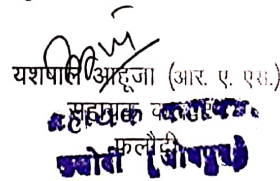 यशपाल आहूजा (आर. ए. एस.)
सहायक कलक्टर
फलौदी
फलोदी (जोधपुर)